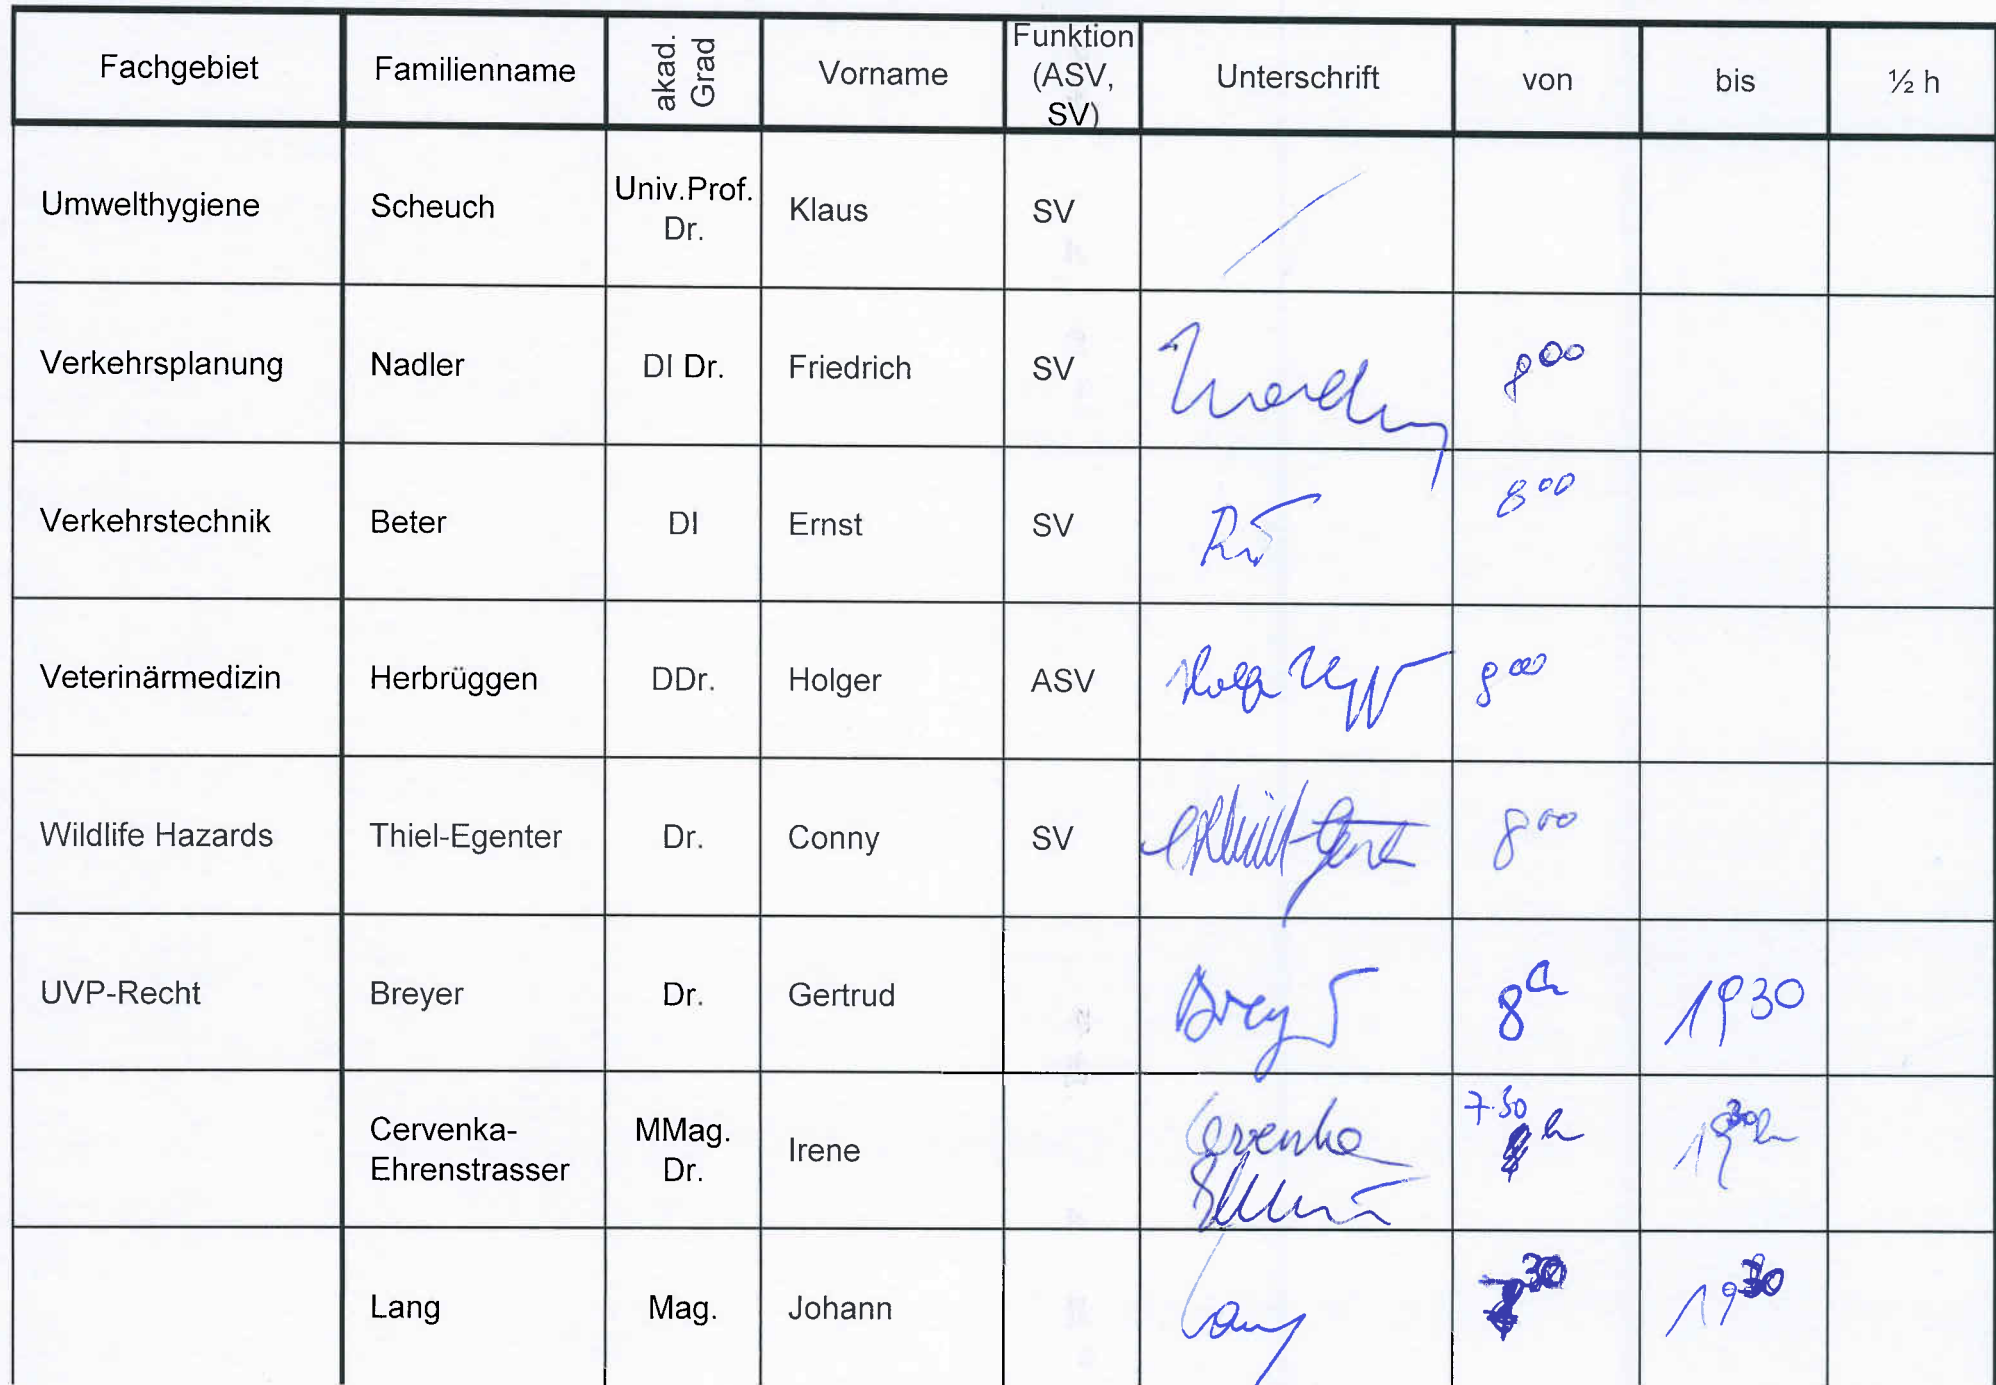 Fachgebiet Familienname akad. Grad Vorname Funktion (ASV, SV) Unterschrift von bis ½ h
Umwelthygiene Scheuch Univ.Prof. Dr. Klaus SV
Verkehrsplanung Nadler DI Dr. Friedrich SV 8⁰⁰
Verkehrstechnik Beter DI Ernst SV 8⁰⁰
Veterinärmedizin Herbrüggen DDr. Holger ASV Holger 8⁰⁰
Wildlife Hazards Thiel-Egenter Dr. Conny SV 8⁰⁰
UVP-Recht Breyer Dr. Gertrud Breyer 8h 1930
Cervenka-Ehrenstrasser MMag. Dr. Irene Cervenka 7.30 h 19³⁰h
Lang Mag. Johann Lang 7³⁰ 19³⁰